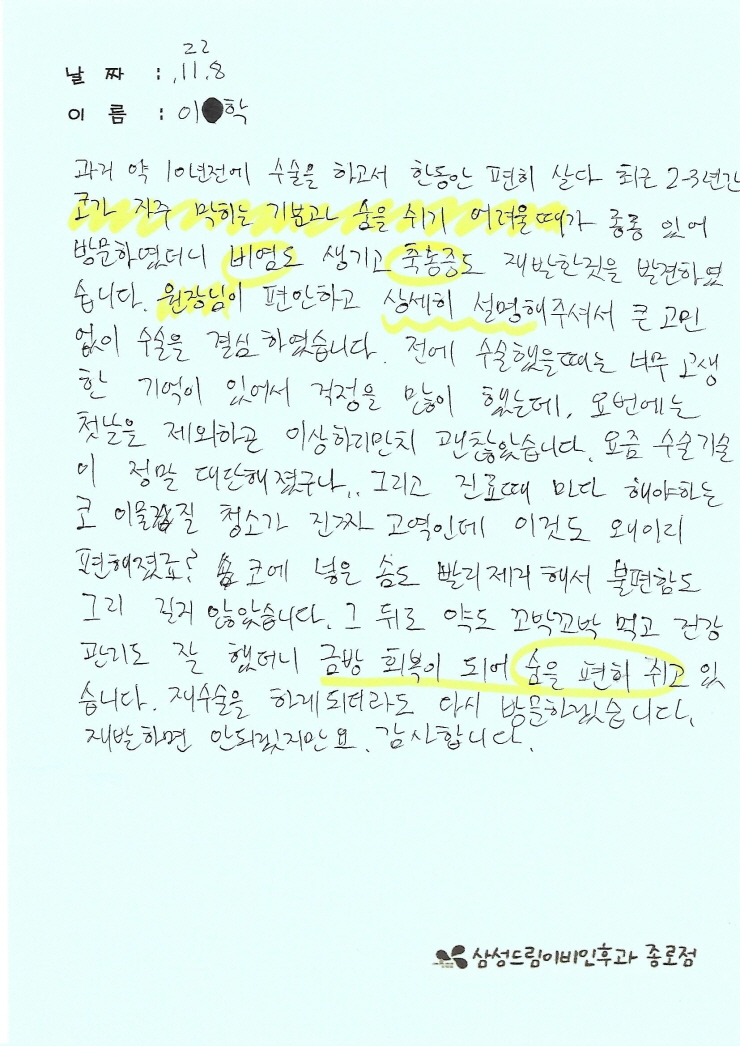 22
날 짜 : .11.8
이 름 : 이 학
과거 약 10년전에 수술을 하고서 한동안 편히 살다 최근 2-3년간
코가 자주 막히는 기분과 숨을 쉬기 어려울때가 종종 있어
방문하였더니 비염도 생기고 축농증도 재발한것을 발견하였
습니다. 원장님이 편안하고 상세히 설명해주셔서 큰 고민
없이 수술을 결심 하였습니다. 전에 수술했을때는 너무 고생
한 기억이 있어서 걱정을 많이 했는데, 요번에는
첫날을 제외하곤 이상하리만치 괜찮았습니다. 요즘 수술기술
이 정말 대단해졌구나.. 그리고 진료때 마다 해야하는
코 이물질 청소가 진짜 고역인데 이것도 왜이리
편해졌죠? 코에 넣은 솜도 빨리제거해서 불편함도
그리 길지 않았습니다. 그 뒤로 약도 꼬박꼬박 먹고 건강
관리도 잘 했더니 금방 회복이 되어 숨을 편히 쉬고 있
습니다. 재수술을 하게되더라도 다시 방문하겠습니다.
재발하면 안되겠지만요. 감사합니다.
삼성드림이비인후과 종로점